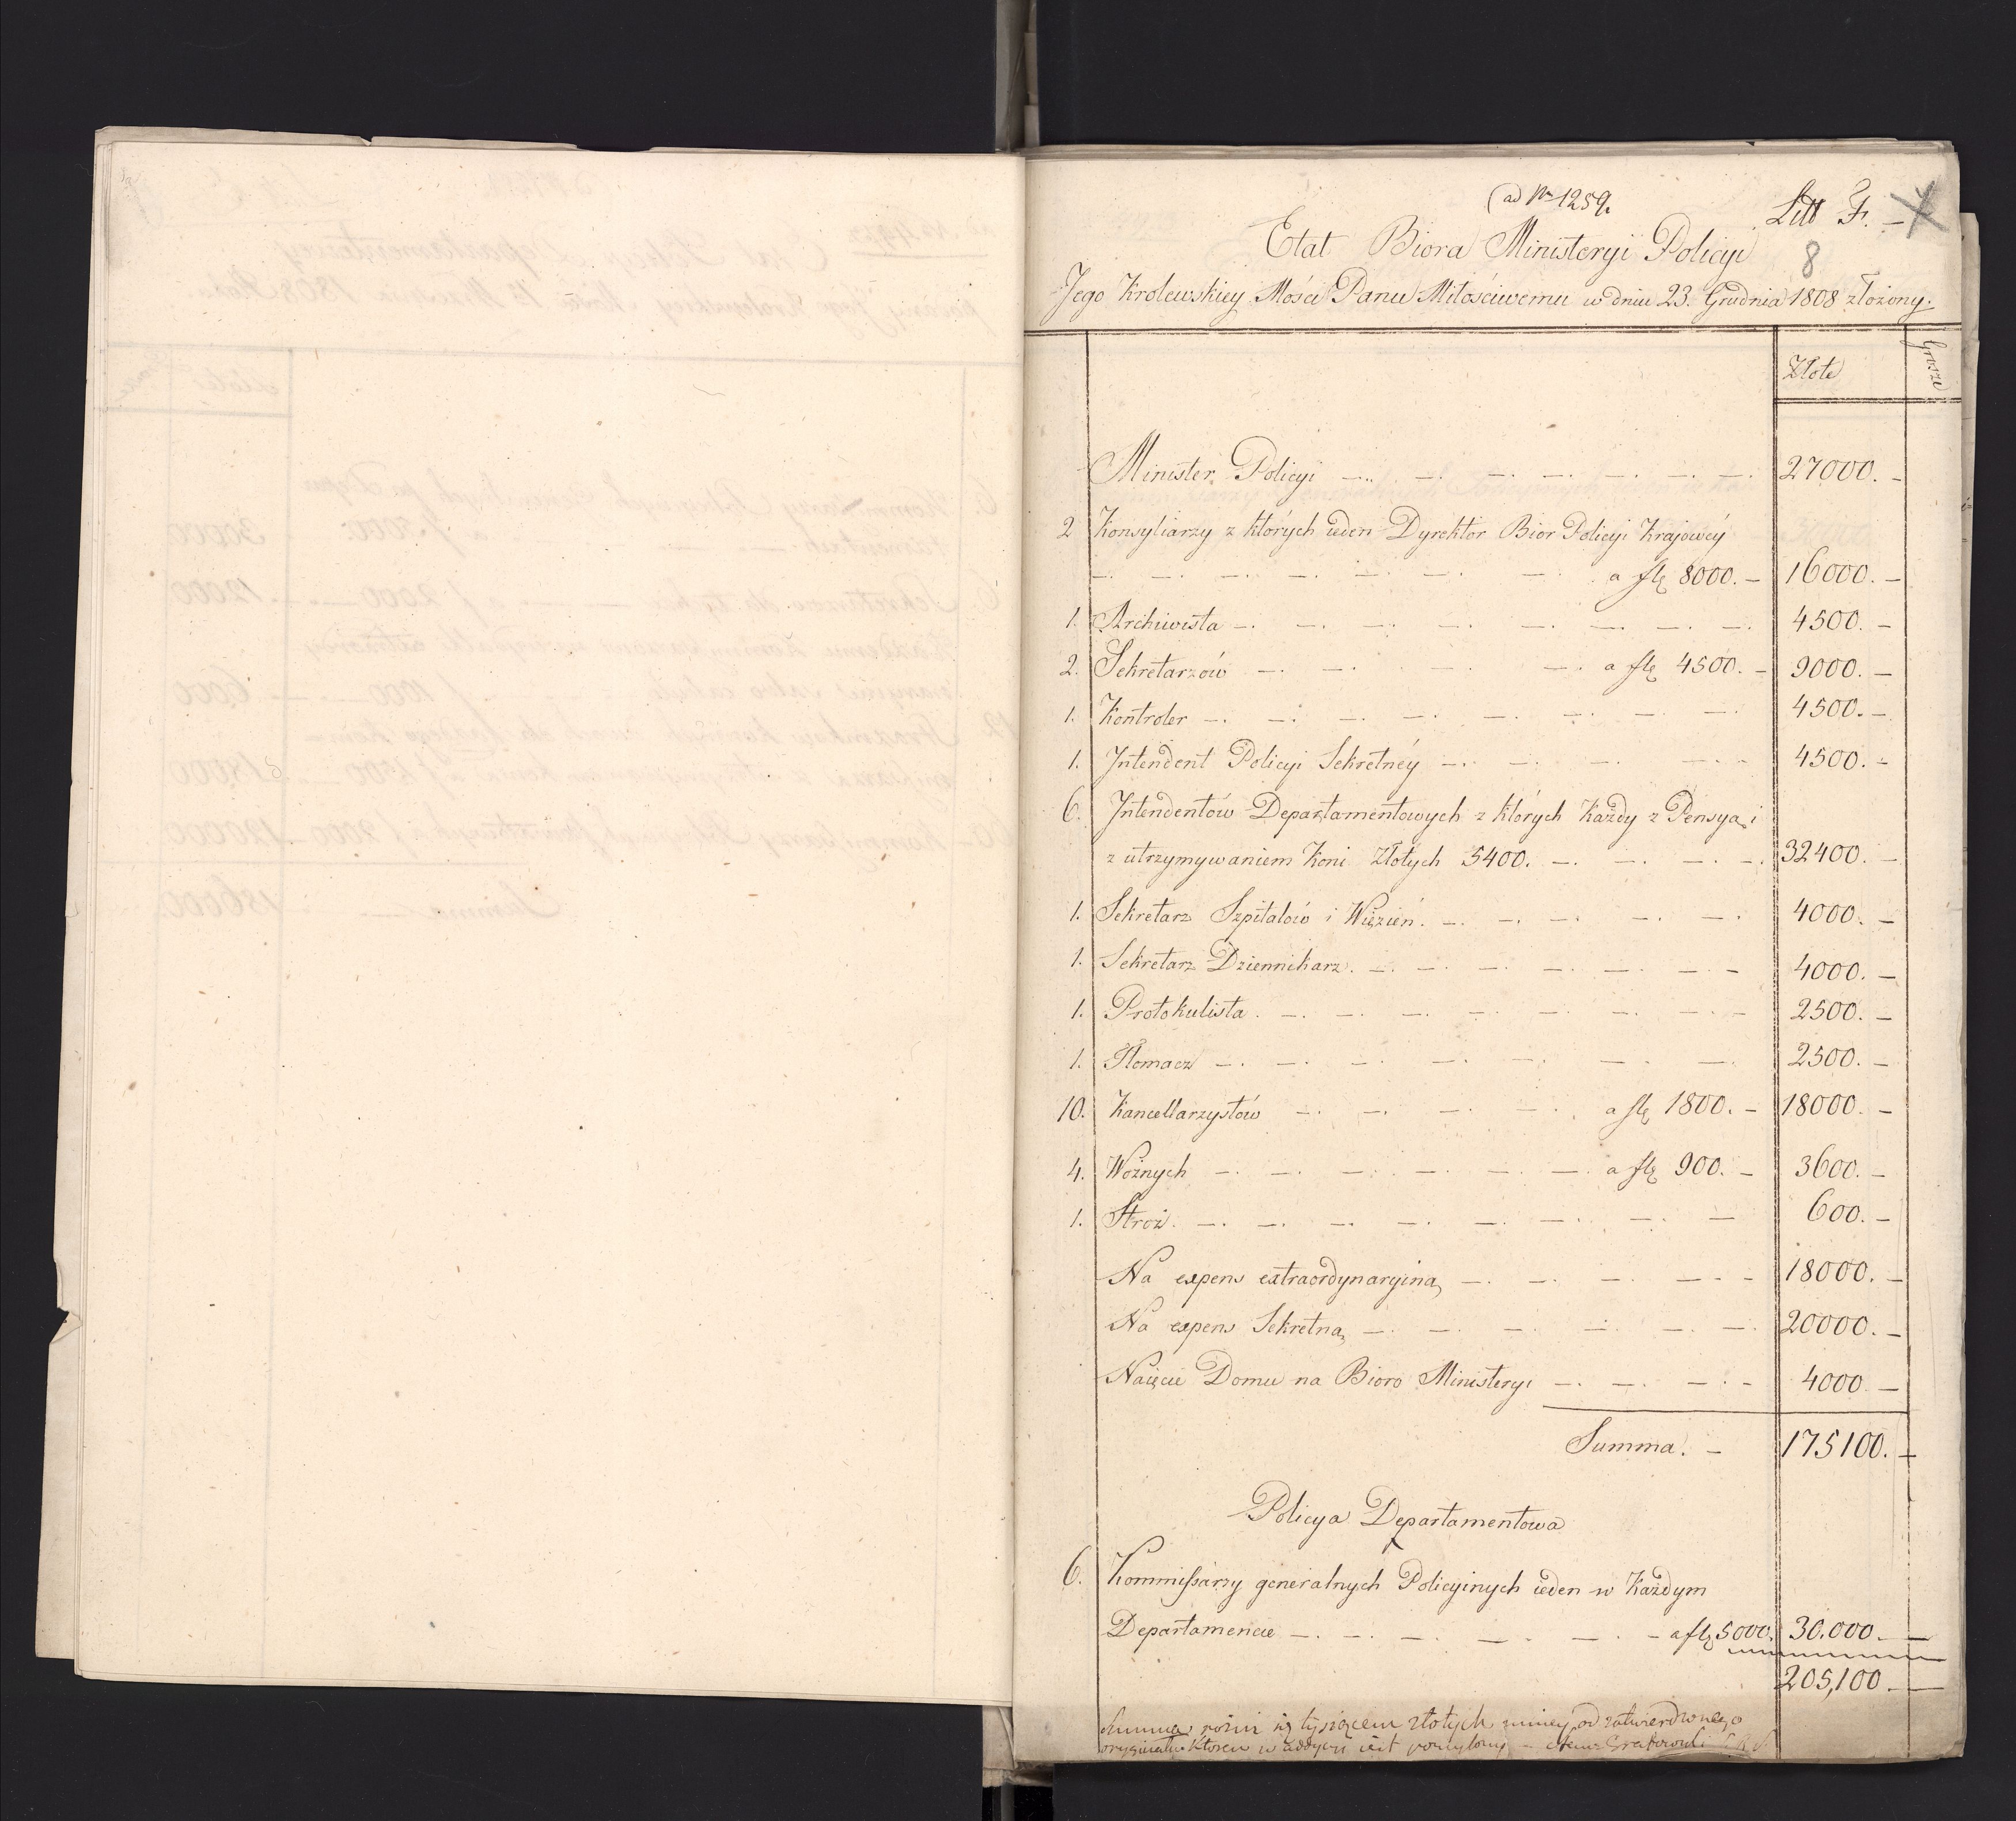 ad Nr 1259.
Litt F. –
8
Etat Biora Ministeryi Policyi
Jego Krolewskiey Mości Panu Miłościwemu w dniu 23. Grudnia 1808 złożony.
Złote Grosze
Minister Policyi — 27000. –
2 Konsyliarzy z których ieden Dyrektor Bior Policyi Krajowéy
a flę 8000. – 16000. –
1. Archiwista — 4500. –
2. Sekretarzów — a flę 4500. – 9000. –
1. Kontroler — 4500. –
1. Intendent Policyi Sekretnéy — 4500. –
6. Intendentów Departamentowych z których Każdy z Pensyą i
z utrzymywaniem Koni Złotych 5400. — 32400. –
1. Sekretarz Szpitalów i Więzień. — 4000. –
1. Sekretarz Dziennikarz. — 4000. –
1. Protokulista. — 2500. –
1. Tłomacz — 2500. –
10. Kancellarzystów — a flę 1800. – 18000. –
4. Woźnych — a flę 900. – 3600. –
1. Stroż. — 600. –
Na expens extraordynaryiną — 18000. –
Na expens Sekretną — 20000. –
Naięcie Domu na Bioro Ministeryi — 4000 –
Summa. – 175100. –
Policya Departamentowa
6. Kommissarzy generalnych Policyinych ieden w Każdym
Departamencie — a flę 5000. 30.000 –
205,100 –
Summa rożni się tysiącem złotych mniey od zatwierdzonego
oryginału któren w addycyi iest pomylony –